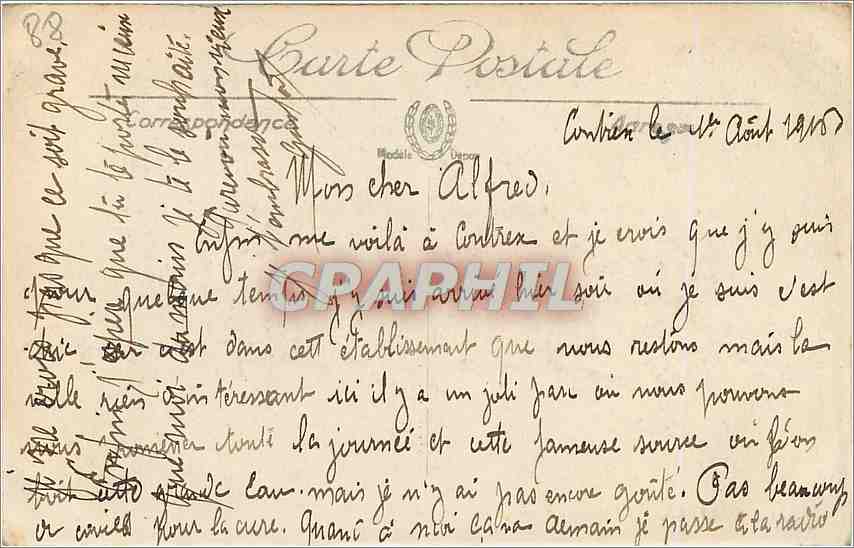 88
Carte Postale
Correspondance
Modèle Dépos
Contrex le 1er Août 1918
Mon cher Alfred.
Enfin me voilà à Contrex et je crois que j'y suis
pour quelque temps j'y suis arrivé hier soir où je suis c'est
chic car c'est dans cett établissement que nous restons mais la
ville rien d'intéressant ici il y a un joli parc où nous pouvons
nous promener toute la journée et cette fameuse source où l'on
boit cette grande eau. mais je n'y ai pas encore goûté. Pas beaucoup
pour la cure. Quant à moi ça va demain je passe à la radio
pas que ce soit grave.
Enfin j'espère que tu te porte mieux
que moi du mois je te le souhaite.
Aurevoir mon vieux
t'embrasse
GRAPHIL